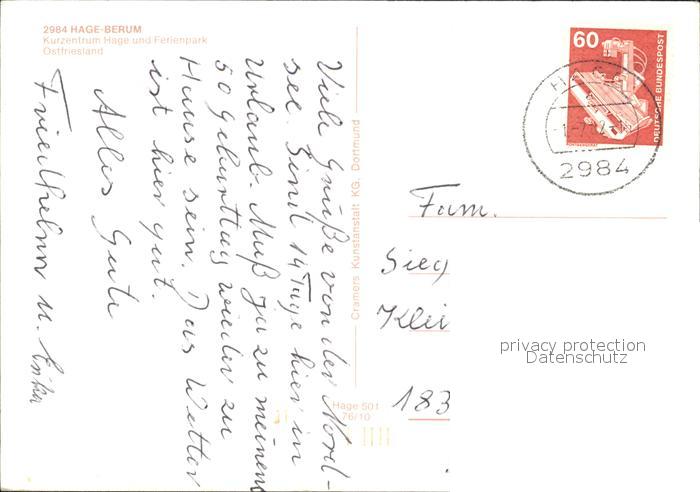 2984 HAGE-BERUM
Kurzentrum Hage und Ferienpark
Ostfriesland
Viele Grüße von der Nord-
see. Sind 14 Tage hier in
Urlaub. Muß ja zu meinem
50 Geburttag wieder zu
Hause sein. Das Wetter
ist hier gut.
Alles Gute
Friedhelm u. Erika
Cramers Kunstanstalt KG, Dortmund
Hage 501
76/10
60
DEUTSCHE BUNDESPOST
RÖNTGENGERÄT
2984
Fam.
Sieg
Klei
183
privacy protection
Datenschutz